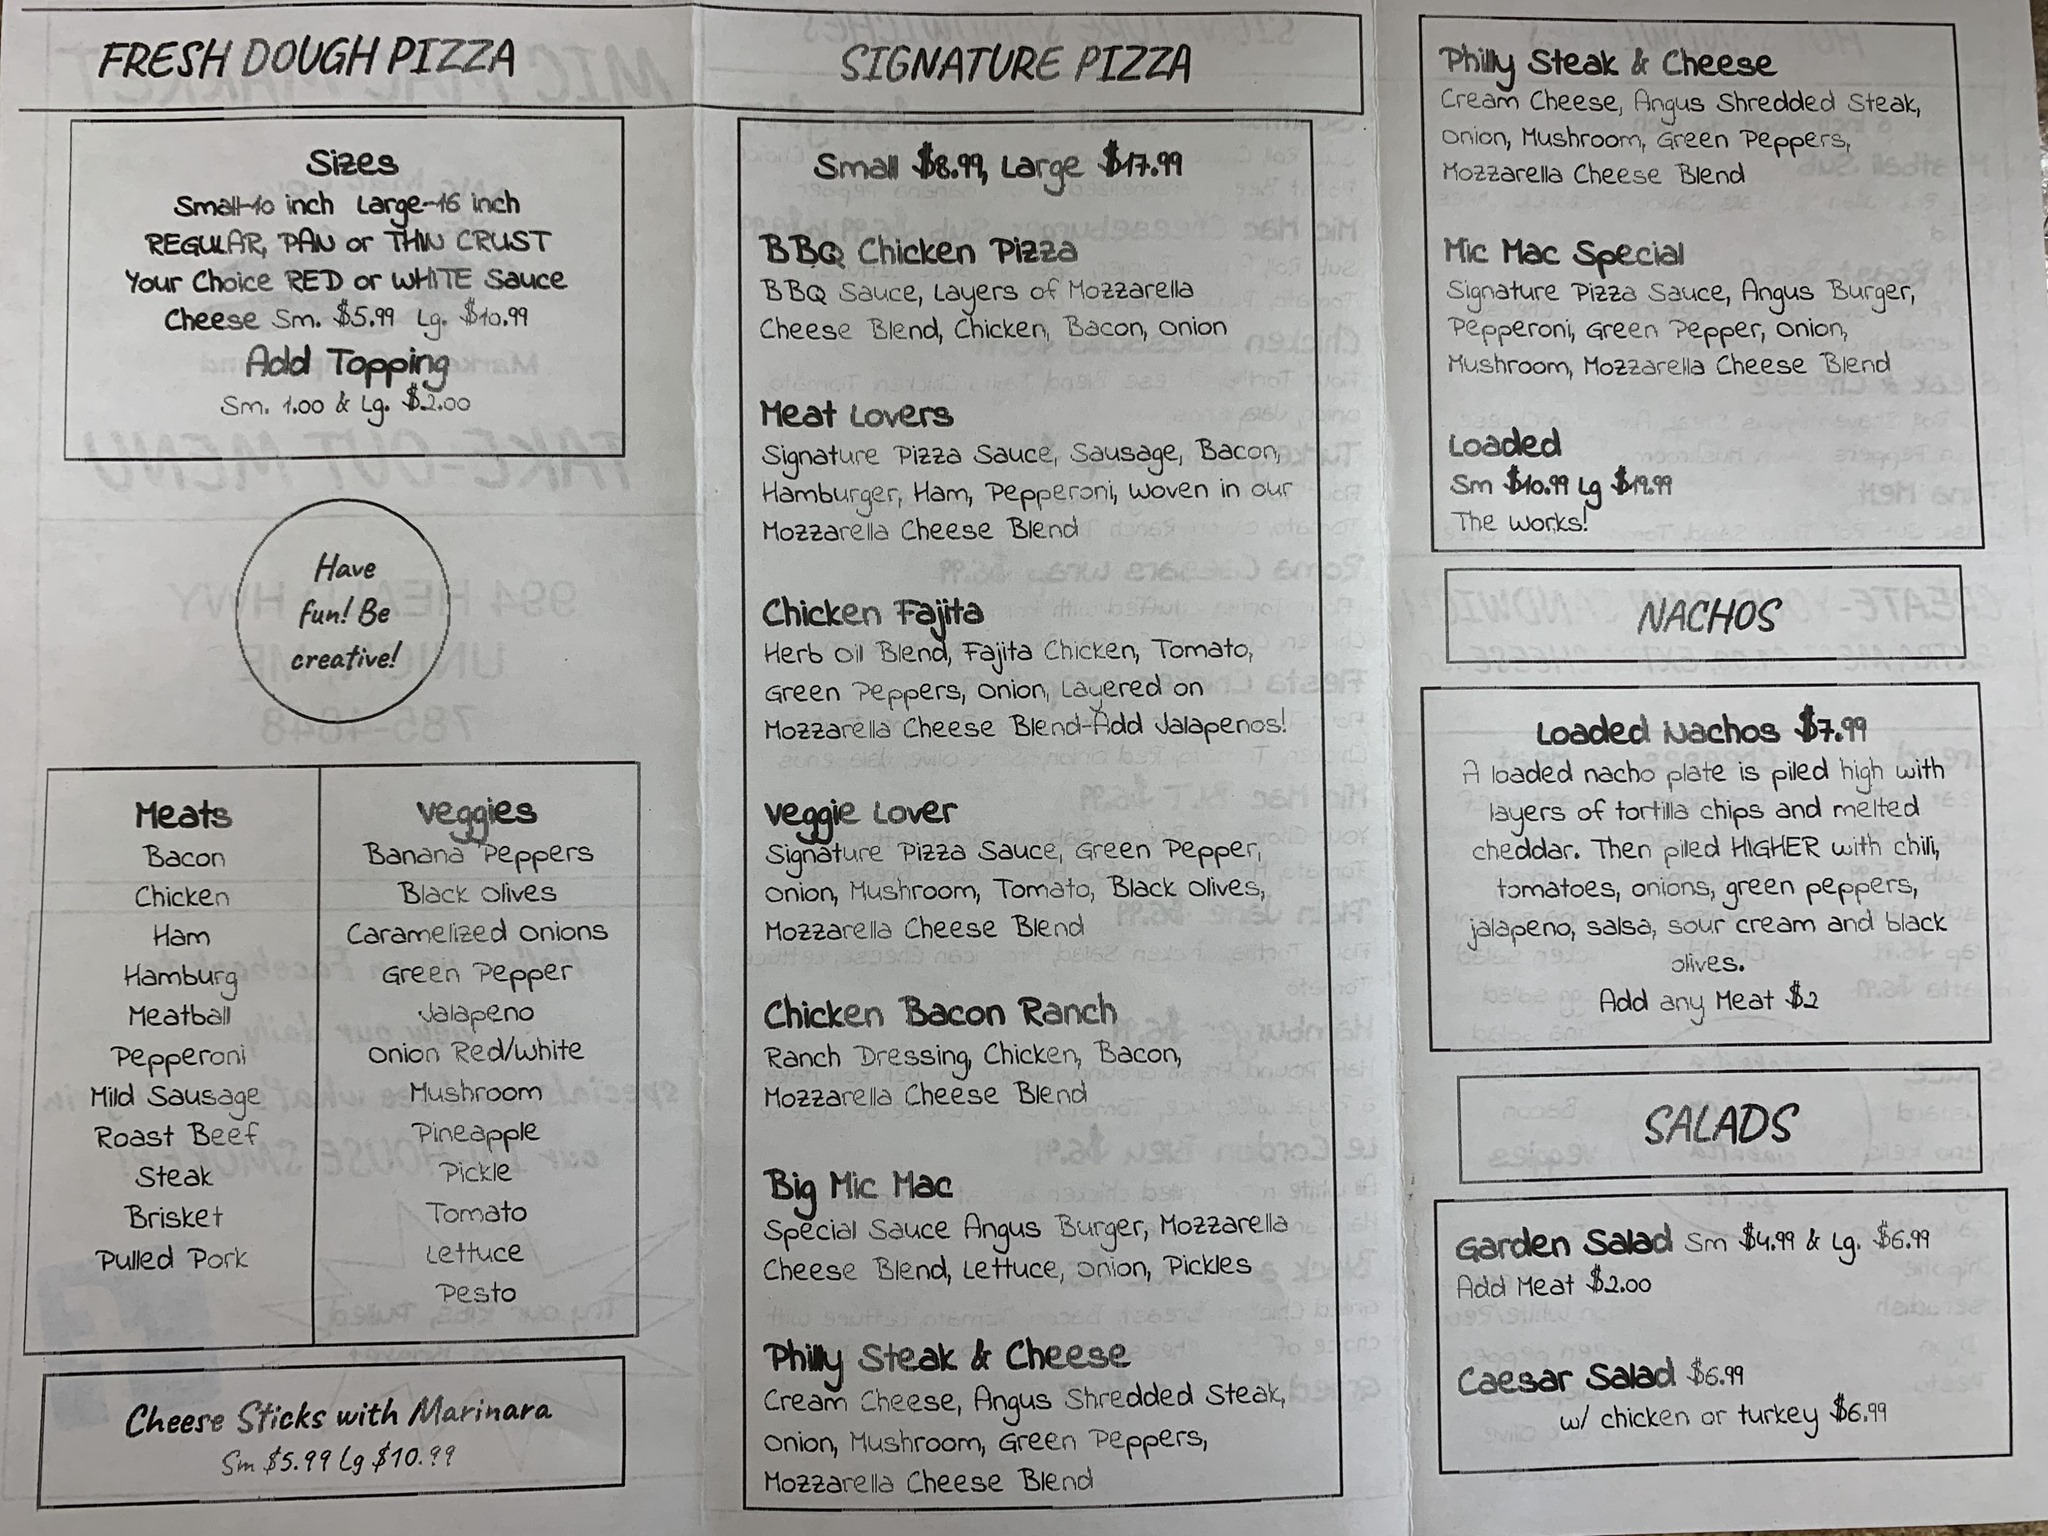 FRESH DOUGH PIZZA
Sizes
Small-10 inch Large-16 inch
REGULAR, PAN or THIN CRUST
Your Choice RED or WHITE Sauce
Cheese Sm. $5.99 Lg. $10.99
Add Topping
Sm. 1.00 & Lg. $2.00
Have
fun! Be
creative!
Meats
Bacon
Chicken
Ham
Hamburg
Meatball
Pepperoni
Mild Sausage
Roast Beef
Steak
Brisket
Pulled Pork
Veggies
Banana Peppers
Black Olives
Caramelized Onions
Green Pepper
Jalapeno
Onion Red/White
Mushroom
Pineapple
Pickle
Tomato
Lettuce
Pesto
Cheese Sticks with Marinara
Sm $5.99 Lg $10.99
SIGNATURE PIZZA
Small $8.99, Large $17.99
BBQ Chicken Pizza
BBQ Sauce, Layers of Mozzarella
Cheese Blend, Chicken, Bacon, Onion
Meat Lovers
Signature Pizza Sauce, Sausage, Bacon,
Hamburger, Ham, Pepperoni, Woven in our
Mozzarella Cheese Blend
Chicken Fajita
Herb Oil Blend, Fajita Chicken, Tomato,
Green Peppers, Onion, Layered on
Mozzarella Cheese Blend-Add Jalapenos!
Veggie Lover
Signature Pizza Sauce, Green Pepper,
Onion, Mushroom, Tomato, Black Olives,
Mozzarella Cheese Blend
Chicken Bacon Ranch
Ranch Dressing, Chicken, Bacon,
Mozzarella Cheese Blend
Big Mic Mac
Special Sauce Angus Burger, Mozzarella
Cheese Blend, Lettuce, Onion, Pickles
Philly Steak & Cheese
Cream Cheese, Angus Shredded Steak,
Onion, Mushroom, Green Peppers,
Mozzarella Cheese Blend
Philly Steak & Cheese
Cream Cheese, Angus Shredded Steak,
Onion, Mushroom, Green Peppers,
Mozzarella Cheese Blend
Mic Mac Special
Signature Pizza Sauce, Angus Burger,
Pepperoni, Green Pepper, Onion,
Mushroom, Mozzarella Cheese Blend
Loaded
Sm $10.99 Lg $19.99
The Works!
NACHOS
Loaded Nachos $7.99
A loaded nacho plate is piled high with
layers of tortilla chips and melted
cheddar. Then piled HIGHER with chili,
tomatoes, onions, green peppers,
jalapeno, salsa, sour cream and black
olives.
Add any Meat $2
SALADS
Garden Salad Sm $4.99 & Lg. $6.99
Add Meat $2.00
Caesar Salad $5.99
w/ chicken or turkey $6.99